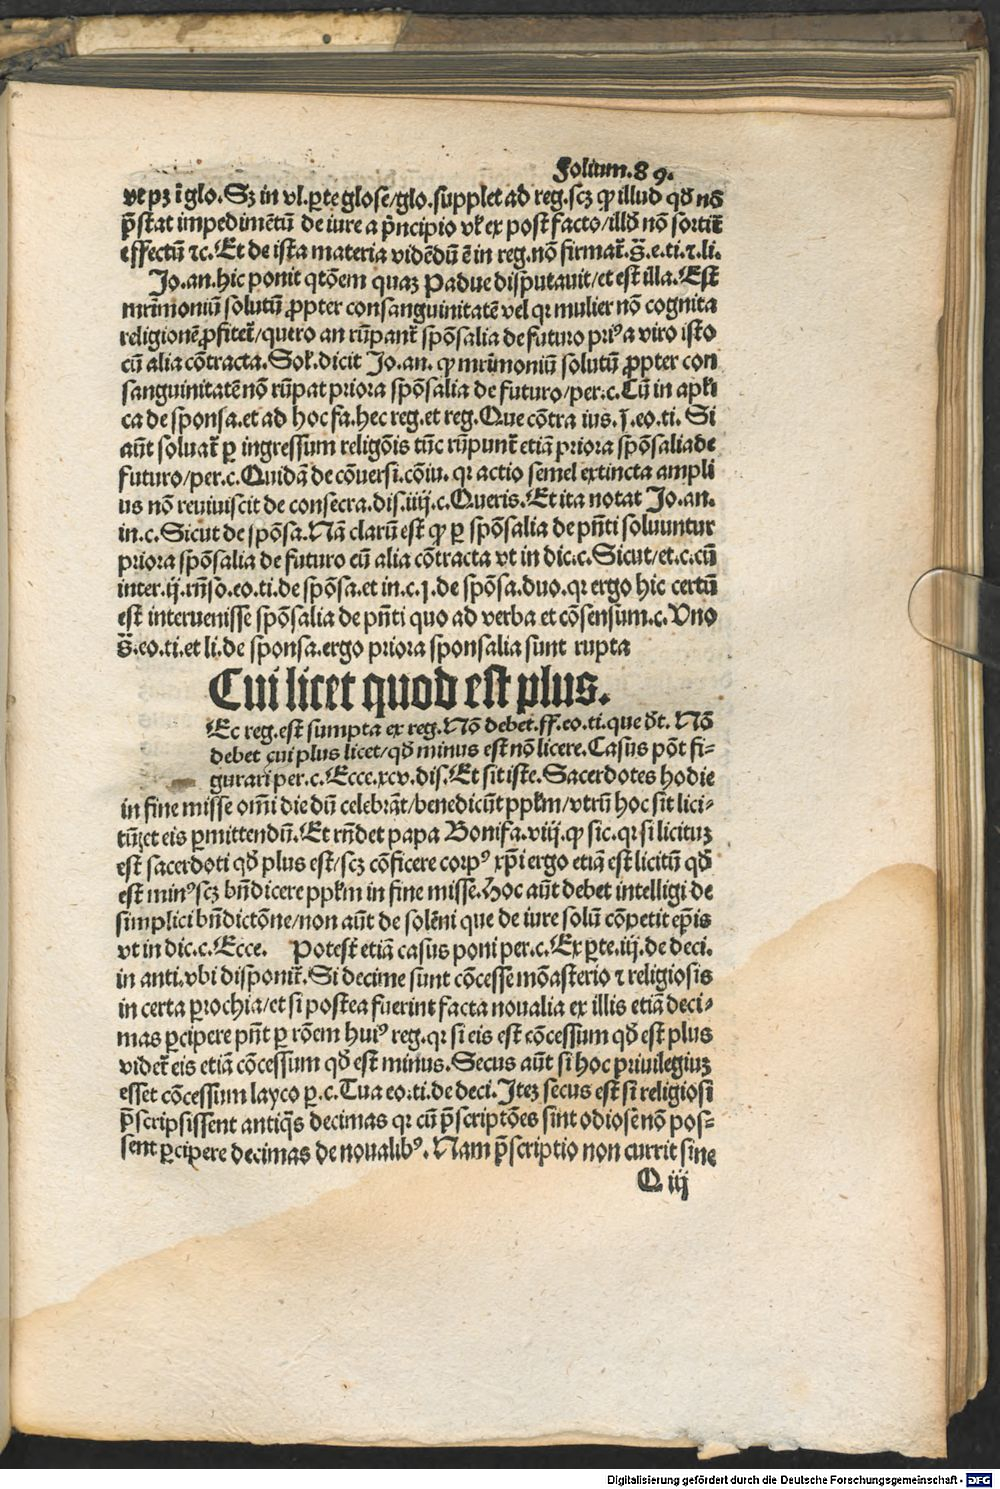 Folium.89.
vt pꝫ ī glo. Sꝫ in vl. ꝑte glose/glo. supplet ad reg. scꝫ ꝙ illud qd̄ nō
p̄stat impedimētū de iure a p̄ncipio vl̓ ex post facto/illd̄ nō sortit̄
effectū ⁊c. Et de ista materia vidēdū ē in reg. nō firmat̄. s̄. e. ti. ⁊. li.
Jo. an. hic ponit qtōem quaꝫ Padue disputauit/et est illa. Est
mrīmoniū solutū ꝓpter consanguinitatē vel qꝛ mulier nō cognita
religionē ꝓfitet̄/quero an rūpant̄ spōsalia de futuro priꝰ a viro isto
cū alia cōtracta. Sol̓. dicit Jo. an. ꝙ mrīmoniū solutū ꝓpter con
sanguinitatē nō rūpat priora spōsalia de futuro/per. c. Cū in apl̓i
ca de sponsa. et ad hoc fa. hec reg. et reg. Que cōtra ius. j. eo. ti. Si
aūt soluat̄ ꝑ ingressum religōis tūc rūpunt̄ etiā priora spōsalia de
futuro/per. c. Quidā de cōuersi. cōiu. qꝛ actio semel extincta ampli
us nō reuiuiscit de consecra. dis. iiij. c. Queris. Et ita notat Jo. an.
in. c. Sicut de spōsa. Nā clarū est ꝙ ꝑ spōsalia de pn̄ti soluuntur
priora spōsalia de futuro cū alia cōtracta vt in dic. c. Sicut/et. c. cū
inter. ij. rn̄so. eo. ti. de spōsa. et in. c. j. de spōsa. duo. qꝛ ergo hic certū
est interuenisse spōsalia de pn̄ti quo ad verba et cōsensum. c. Vno
s̄. eo. ti. et li. de sponsa. ergo priora sponsalia sunt rupta
Cui licet quod est plus.
Ec reg. est sumpta ex reg. Nō debet. ff. eo. ti. que dt̄. Nō
debet cui plus licet/qd̄ minus est nō licere. Casus pōt fi⸗
gurari per. c. Ecce. xcv. dis. Et sit iste. Sacerdotes hodie
in fine misse om̄i die dū celebrāt/benedicūt ppl̓m/vtrū hoc sit lici⸗
tū/et eis ꝑmittendū. Et rn̄det papa Bonifa. viij. ꝙ sic. qꝛ si licituꝫ
est sacerdoti qd̄ plus est/scꝫ cōficere corpꝰ xp̄i ergo etiā est licitū qd̄
est minꝰ scꝫ bn̄dicere ppl̓m in fine misse. Hoc aūt debet intelligi de
simplici bn̄dictōne/non aūt de solēni que de iure solū cōpetit ep̄is
vt in dic. c. Ecce. Potest etiā casus poni per. c. Ex ꝑte. iij. de deci.
in anti. vbi disponit̄. Si decime sunt cōcesse mōasterio ⁊ religiosis
in certa ꝑrochia/et si postea fuerint facta noualia ex illis etiā deci⸗
mas ꝑcipere pn̄t ꝑ rōem huiꝰ reg. qꝛ si eis est cōcessum qd̄ est plus
videt̄ eis etiā cōcessum qd̄ est minus. Secus aūt si hoc priuilegiuꝫ
esset cōcessum layco ꝑ. c. Tua eo. ti. de deci. Iteꝫ secus est si religiosi
p̄scripsissent antiq̄s decimas qꝛ cū p̄scriptōes sint odiose nō pos⸗
sent ꝑcipere decimas de noualibꝰ. Nam p̄scriptio non currit sine
Q iij
Digitalisierung gefördert durch die Deutsche Forschungsgemeinschaft - DFG